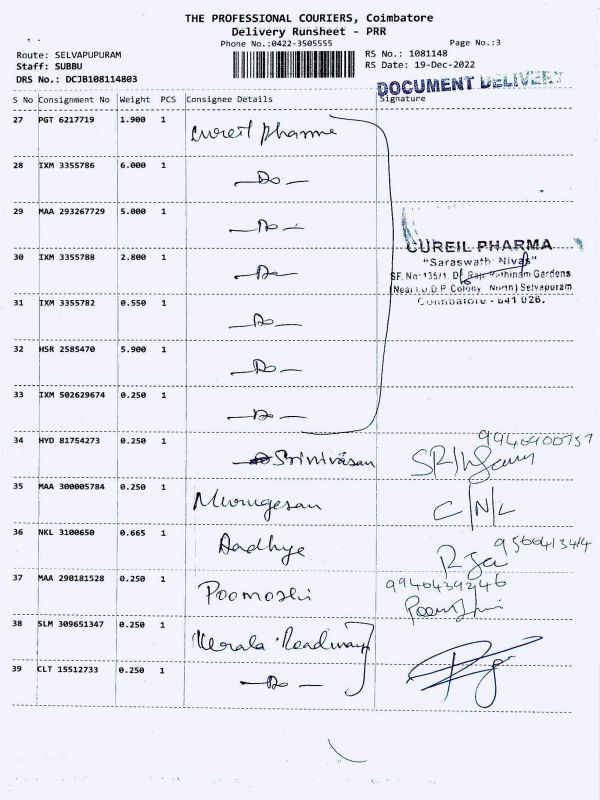 THE PROFESSIONAL COURIERS, Coimbatore
Delivery Runsheet - PRR
Phone No.:0422-3505555
Page No.:3
Route: SELVAPUPURAM
RS No.: 1081148
Staff: SUBBU
RS Date: 19-Dec-2022
DRS No.: DCJB108114803
DOCUMENT DELIVERY
S No Consignment No Weight PCS Consignee Details Signature
27 PGT 6217719 1.900 1 Cureil pharma
28 IXM 3355786 6.000 1 -Do-
29 MAA 293267729 5.000 1 -Do-
30 IXM 3355788 2.800 1 -Do-
31 IXM 3355782 0.550 1 -Do-
32 HSR 2585470 5.900 1 -Do-
33 IXM 502629674 0.250 1 -Do-
CUREIL PHARMA
"Saraswath Nivas"
SF. No 135/1 Gardens
Colony North) Selvapuram
Coimbatore - 641 026.
34 HYD 81754273 0.250 1 Srinivasan
35 MAA 300005784 0.250 1 Murugesan C/N/L
36 NKL 3100650 0.665 1 Aadhye
37 MAA 290181528 0.250 1 9946439246
38 SLM 309651347 0.250 1 Kerala Roadways
39 CLT 15512733 0.250 1 -Do-